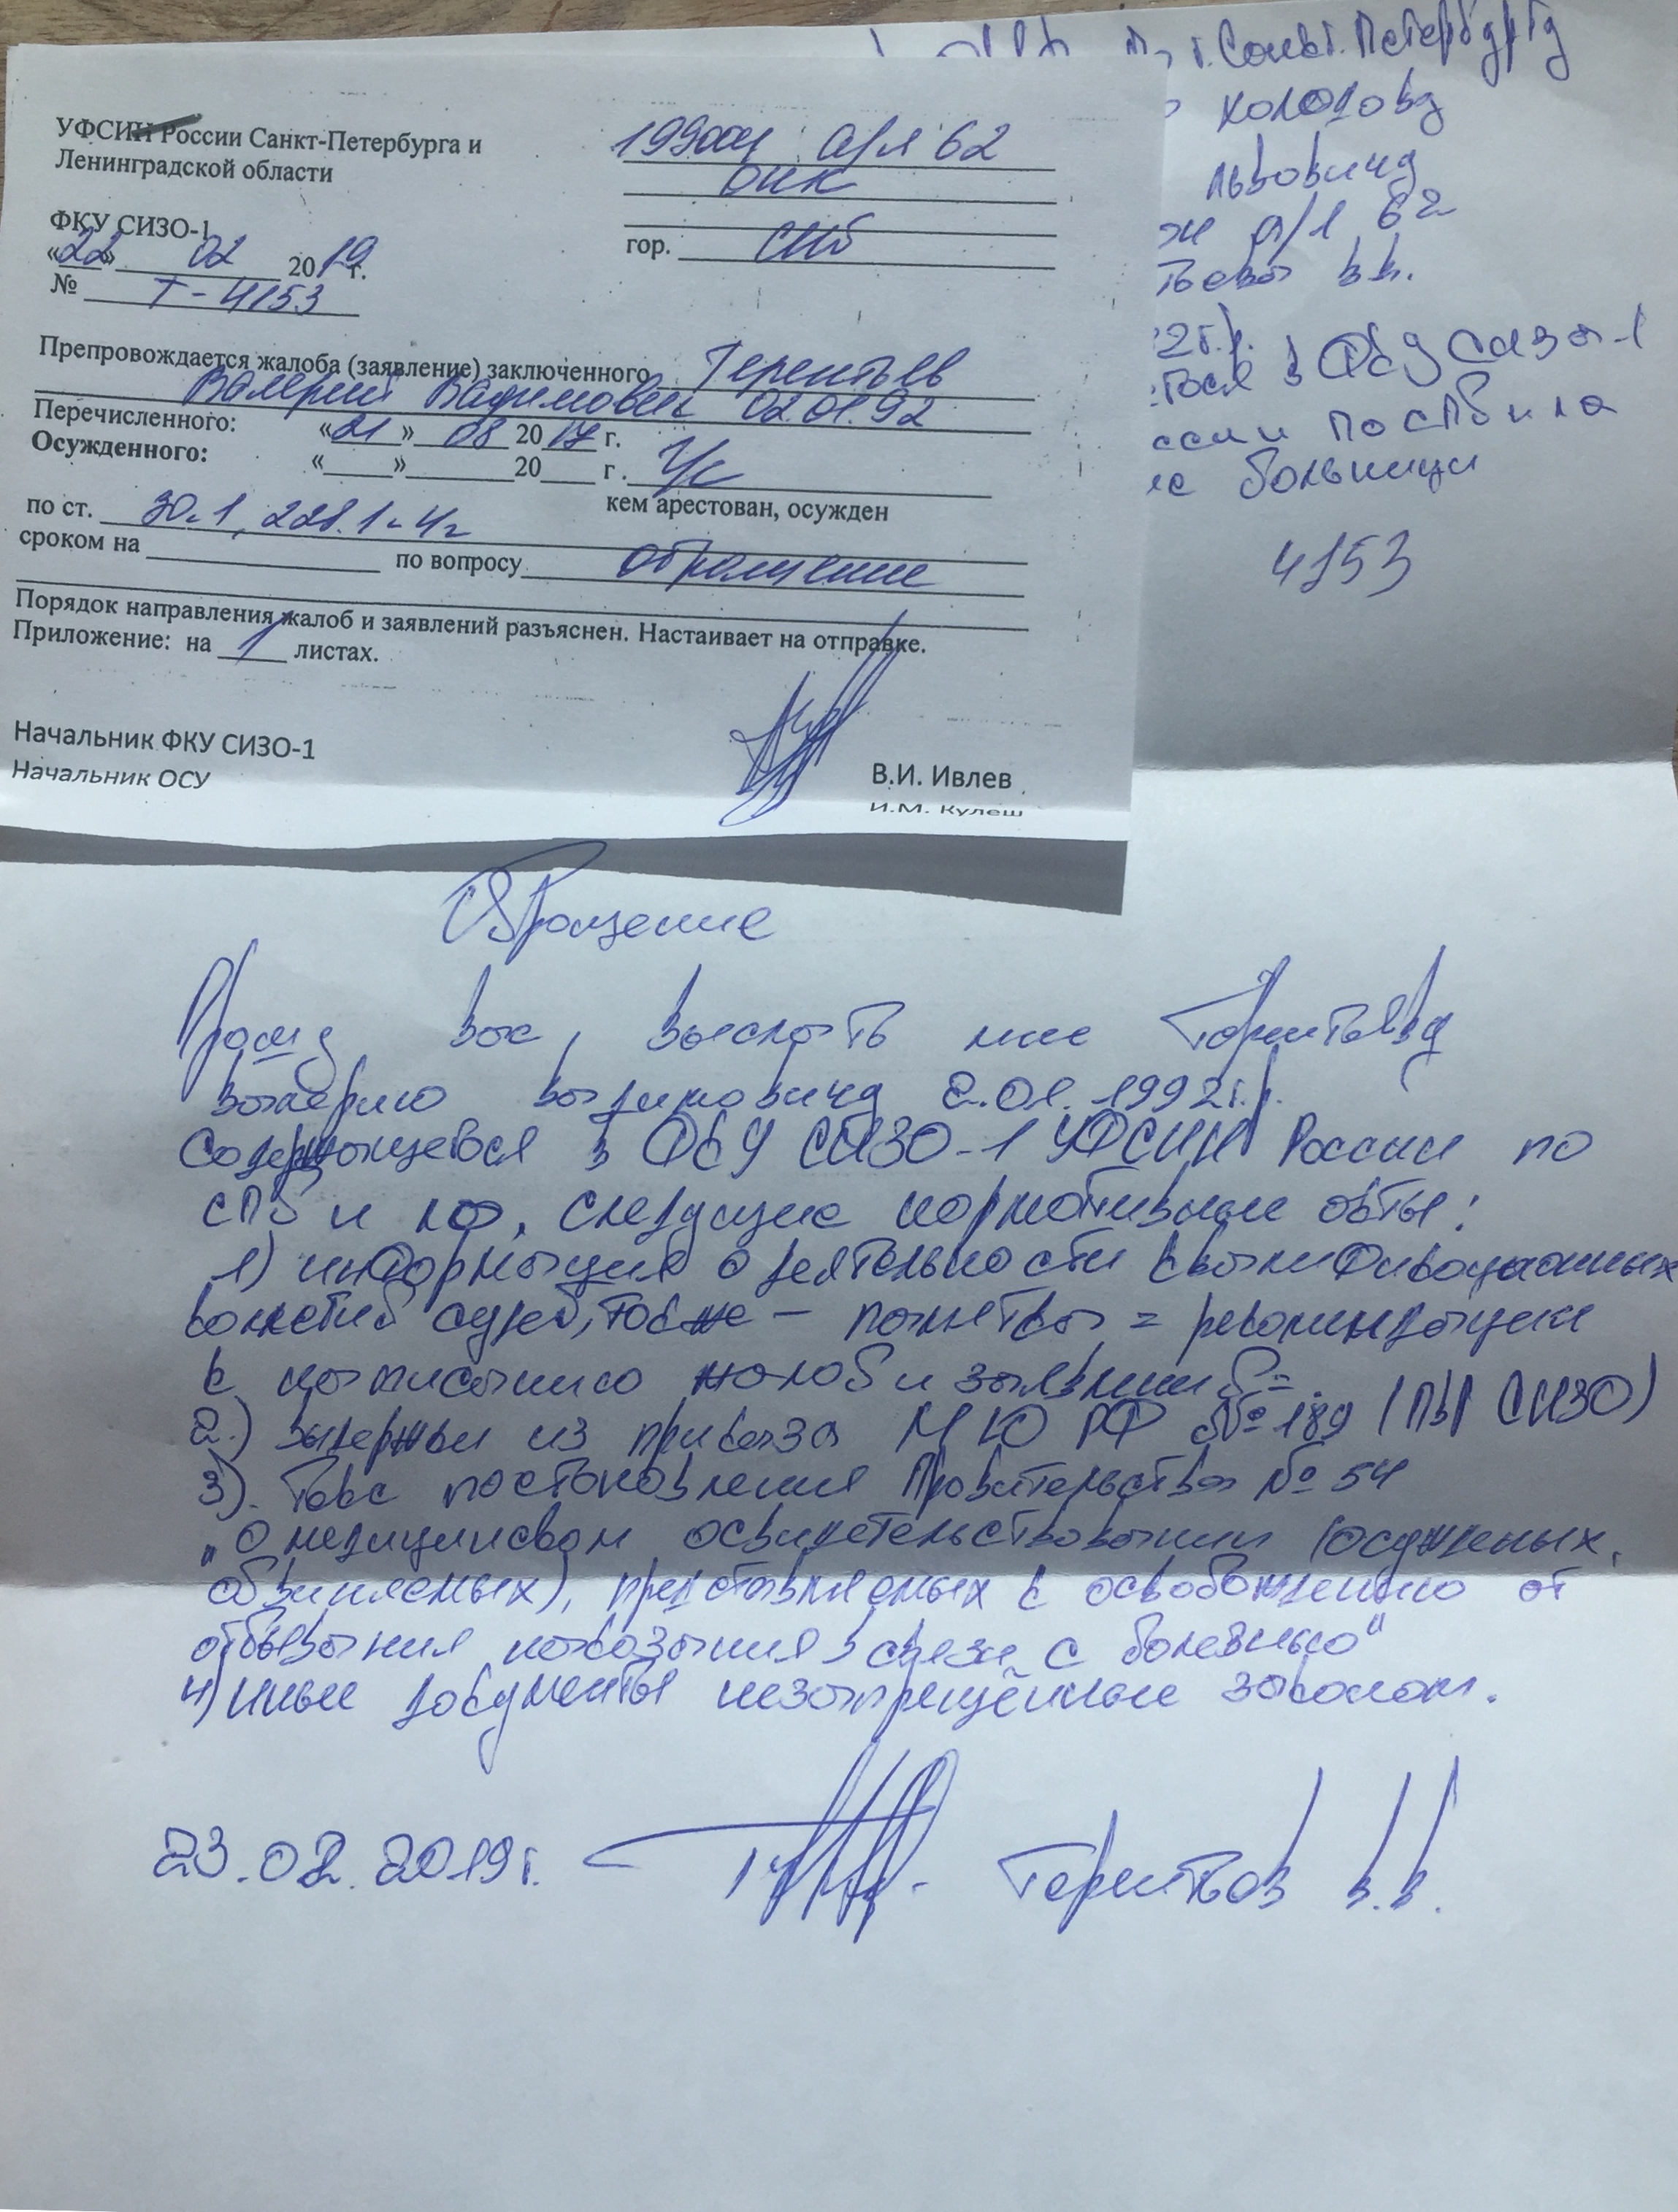 УФСИН России Санкт-Петербурга и
Ленинградской области
ФКУ СИЗО-1
«22» 02 2019 г.
№ Т-4153
199004 а/я 62
ОНК
гор. СПб
Препровождается жалоба (заявление) заключенного Терентьев
Валерий Вадимович 02.01.92
Перечисленного: «21» 08 2017 г.
Осужденного: «____»________20____г. Ч/с
кем арестован, осужден
по ст. 30.1, 228.1 ч 4г
сроком на ________ по вопросу обращение
Порядок направления жалоб и заявлений разъяснен. Настаивает на отправке.
Приложение: на 1 листах.
Начальник ФКУ СИЗО-1
Начальник ОСУ
В.И. Ивлев
И.М. Кулеш
г. Санкт. Петербургу
Холодову
львовичу
а/я 62
в.в.
2г.р.
в ФКУ Сизо-1
ссии по спб и ло
больници
4153
Обращение
Прошу вас, выслать мне Терентьеву
валерию вадимовичу 2.01.1992г.р.
Содержащегося в ФКУ СИЗО-1 УФСИН России по
СПб и ло, следущие нормативные акты:
1) информация о деятельности квалификационых
колегий судей, также – памятка = рекомендации
к написанию жалоб и заявлений =.
2.) выдержки из приказа МЮ РФ №189 (ПВР СИЗО)
3). Такс постановления Правительства № 54
„О медицинском освидетельствовании (осужденых,
обвиняемых), представляемых к освобождению от
отбывания наказания в связи с болезнью"
4) иные документы незапрещённые законом.
23.02.2019г. Терентьев в.в.